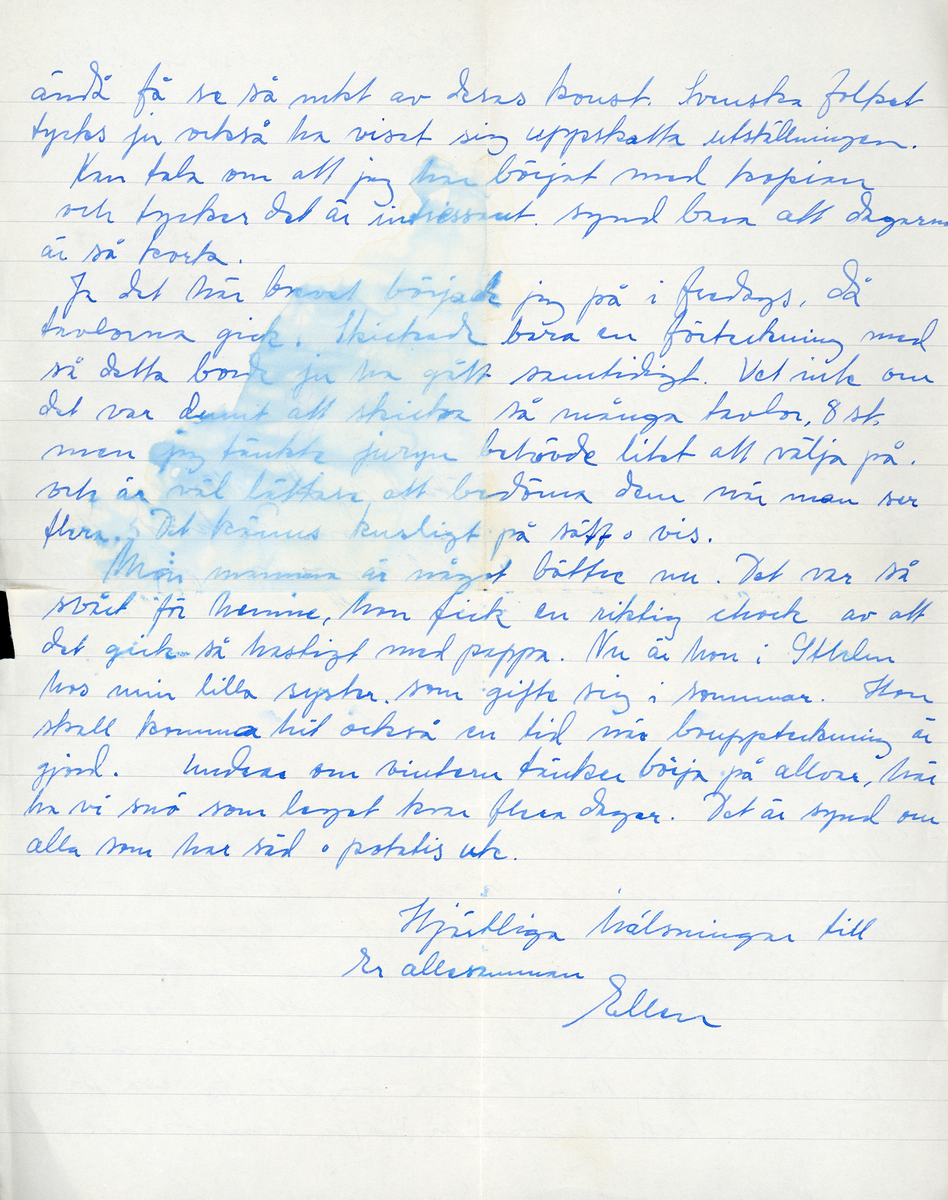 ändå få se så mkt av deras konst. Svenska folket
tycks ju också ha visat sig uppskatta utställningen.
Kan tala om att jag har börjat med kopian
och tycker det är intressant. synd bara att dagarna
är så korta.
Ja det här brevet började jag på i fredags, då
tavlorna gick. Skickade bara en förteckning med
så detta borde ju ha gått samtidigt. Vet inte om
det var dumt att skicka så många tavlor, 8 st.
men jag tänkte juryn behövde litet att välja på.
och är väl lättare att bedöma dem när man ser
flera. Det känns kusligt på sätt o vis.
Min mamma är något bättre nu. Det var så
svårt för henne, hon fick en riktig chock av att
det gick så hastigt med pappa. Nu är hon i Sthlm
hos min lilla syster. som gifte sig i sommar. Hon
skall komma hit också en tid när bouppteckning är
gjord. Undrar om vintern tänker börja på allvar, här
ha vi snö som legat kvar flera dagar. Det är synd om
alla som har säd o potatis ute.
Hjärtliga hälsningar till
Er allesamman
Ellen